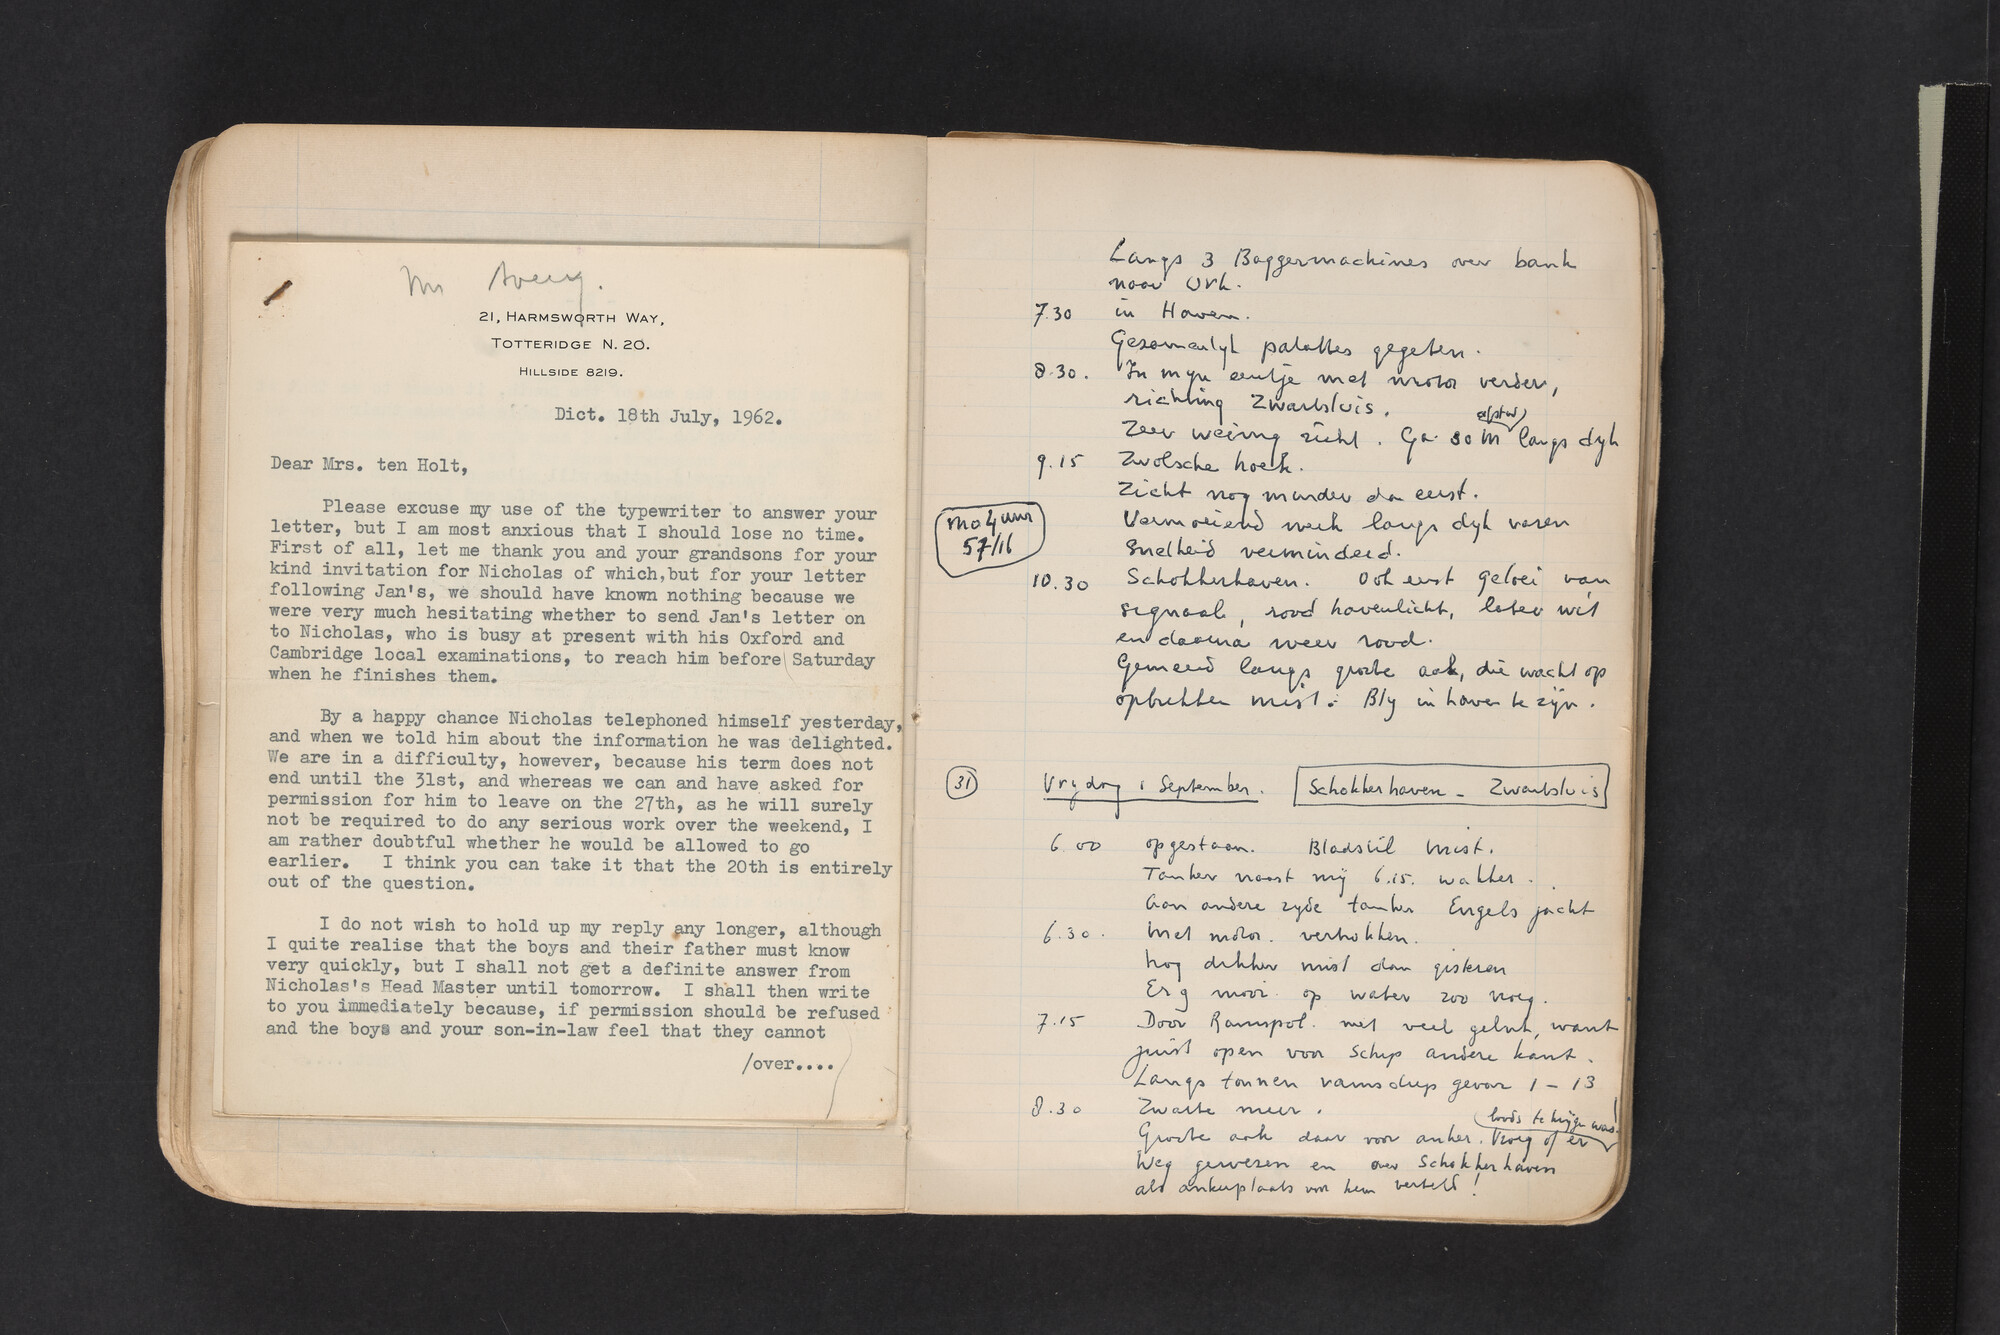 Mr Avery.
21, HARMSWORTH WAY,
TOTTERIDGE N. 20.
HILLSIDE 8219.
Dict. 18th July, 1962.
Dear Mrs. ten Holt,
Please excuse my use of the typewriter to answer your
letter, but I am most anxious that I should lose no time.
First of all, let me thank you and your grandsons for your
kind invitation for Nicholas of which,but for your letter
following Jan's, we should have known nothing because we
were very much hesitating whether to send Jan's letter on
to Nicholas, who is busy at present with his Oxford and
Cambridge local examinations, to reach him before Saturday
when he finishes them.
By a happy chance Nicholas telephoned himself yesterday,
and when we told him about the information he was delighted.
We are in a difficulty, however, because his term does not
end until the 31st, and whereas we can and have asked for
permission for him to leave on the 27th, as he will surely
not be required to do any serious work over the weekend, I
am rather doubtful whether he would be allowed to go
earlier. I think you can take it that the 20th is entirely
out of the question.
I do not wish to hold up my reply any longer, although
I quite realise that the boys and their father must know
very quickly, but I shall not get a definite answer from
Nicholas's Head Master until tomorrow. I shall then write
to you immediately because, if permission should be refused
and the boys and your son-in-law feel that they cannot
/over....
Langs 3 Baggermachines over bank
naar Urk.
7.30 in Haven.
Gezamenlyk patattes gegeten.
8.30. In myn eentje met motor verder,
richting Zwartsluis.
Zeer weinig zicht. Ga 30 M afstand langs dyk
9.15 Zwolsche hoek.
Zicht nog minder dan eerst.
Vermoeiend werk langs dyk varen
Snelheid verminderd.
10.30 Schokkerhaven. Ook eerst geloei van
signaal, rood havenlicht, later wit
en daarna weer rood.
Gemeerd langs grote aak, die wacht op
optrekken mist. Bly in haven te zijn.
31 Vrydag 1 September. Schokkerhaven - Zwartsluis
6.00 opgestaan. Bladstil mist.
Tanker naast mij 6.15. wakker.
Aan andere zyde tanker Engels jacht
6.30. Met motor. vertrokken.
Nog dikker mist dan gisteren
Erg mooi op water zoo vroeg.
7.15 Door Ramspol. met veel geluk, want
juist open voor schip andere kant.
Langs tonnen ramsdiep gevaar 1 - 13
8.30 Zwarte meer.
Grote aak daar voor anker. Vroeg of er loods te krijgen was!
Weg gewezen en over Schokkerhaven
als ankerplaats voor hem verteld!